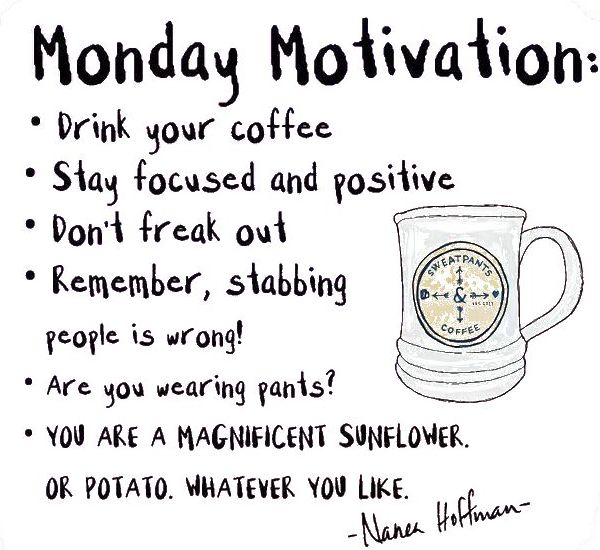 Monday Motivation:
• Drink your coffee
• Stay focused and positive
• Don't freak out
• Remember, stabbing
people is wrong!
• Are you wearing pants?
• YOU ARE A MAGNIFICENT SUNFLOWER.
OR POTATO. WHATEVER YOU LIKE.
SWEATPANTS
&
COFFEE
-Nanea Hoffman-